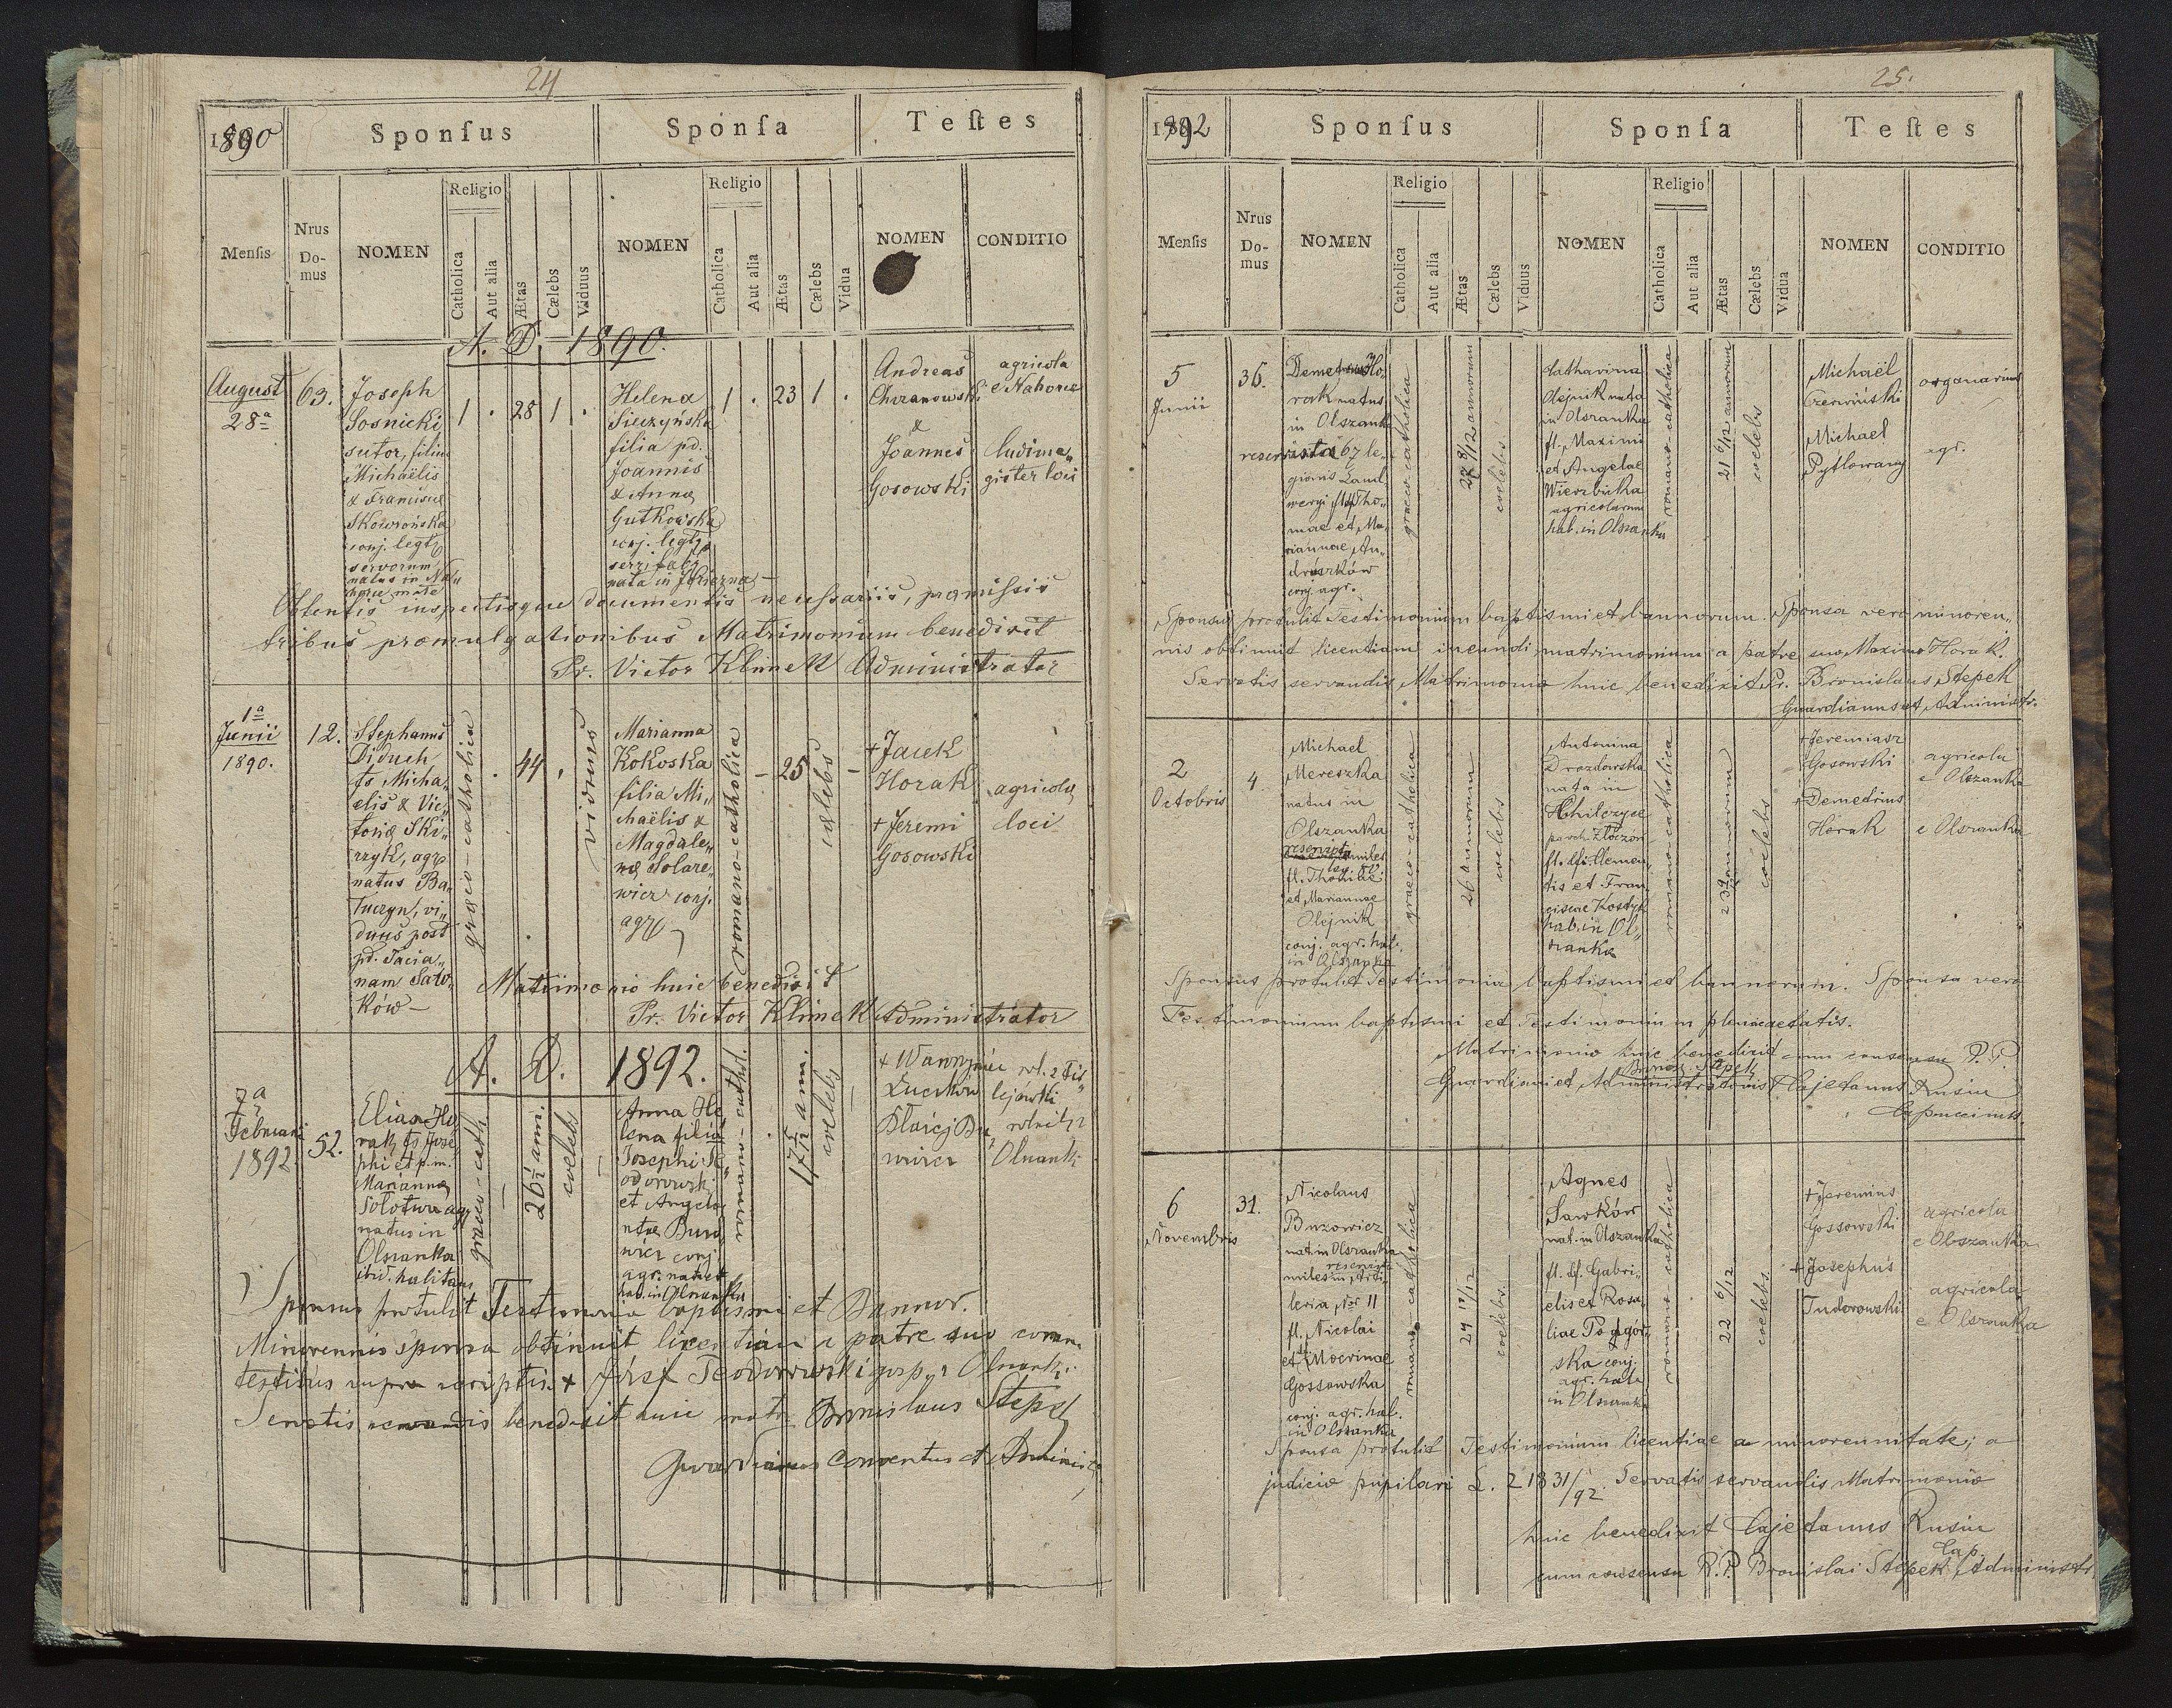 24
1890
Sponſus
Sponſa
Teſtes
Menſis
Nrus Domus
NOMEN
Religio
Catholica
Aut alia
Ætas
Cælebs
Viduus
NOMEN
Religio
Catholica
Aut alia
Ætas
Cælebs
Vidua
NOMEN
CONDITIO
A. D. 1890.
August
28a
63.
Joseph
Sosnicki
sutor, filius
Michaëlis
& Franciscæ
Skowrońska
conj. legt
servorum
natus in
1
.
28
1
.
Helena
Sieczyńska
filia pd.
Joannis
& Annæ
Gutkowska
conj. legt
nata in
1
.
23
1
.
Andreas
Chrzanowski
&
Joannes
Gosowski
agricola
e Nahorce
ludima„
gister loci
Oblentis inspectisque documentis necessariis, præmissis
tribus promulgationibus Matrimonium benedixit
Pr. Victor Klimek Administrator
1a
Junii
1890.
12.
Stephanus
Diduch
fs Micha„
elis & Vic„
toriæ Ski„
rzyk, agr
natus Ba„
tuczyn, vi„
duus post
pd. Tacia„
nam Sato„
ków
græco-catholica
.
44
,
viduus
Marianna
Kokoska
filia Mi„
chaëlis &
Magdale„
næ Solare„
wicz conj.
agr
romano-catholica
25
cælebs
+ Jacek
Horak
+ Jeremi
Gosowski
agricolæ
loci
Matrimonio huic benedixit
Pr. Victor Klimek Administrator
A. D. 1892.
7a
Februarii
1892
52.
Elias Ho
rak fs Jose
phi et p.m.
Mariannæ
Sołotwa agr
natus in
Olszanka
ibid. habitans
græco-cath.
26 1/12 ann.
coelebs
Anna He
lena filia
Josephi Te
odorowski
et Angela
conj
agr. nat et
hab. in Olszanka
romano-cathol.
17 5/12 ann.
coelebs
+ Wawrzyniec
rol. z Fis
lejówki
Błażej Bu
rolnik z
Olszanki
Sponsus protulit Testimonia baptismi et Bannor.
Minorennis sponsa obtinuit licentiam a patre suo coram
testibus supra scriptis. + Józef Teodorowski gosp. z Olszanki.
Servatis servandis benedixit huic matr. Bronislaus Stepek
Guardianus Conventus et Administr
25.
1892
Sponſus
Sponſa
Teſtes
Menſis
Nrus Domus
NOMEN
Religio
Catholica
Aut alia
Ætas
Cælebs
Viduus
NOMEN
Religio
Catholica
Aut alia
Ætas
Cælebs
Vidua
NOMEN
CONDITIO
5
Junii
36.
Demetrius Ho„
rak natus
in Olszanka
reservista 67 le„
gionis Land
weryi fl. Tho„
mae et Ma„
riannae An„
druszków
conj. agr.
graeco-catholica
8/12 annorum
coelebs
Catharina
Olejnik nata
in Olszanka
fl. Maximi
et Angelae
Wierzbicka
agricolarum
hab. in Olszanka
romano-catholica
21 6/12 annorum
coelebs
Michaël
Czerwiński
Michael
Pytlowany
organarius
agr.
Sponsus protulit Testimonium baptismi et bannorum. Sponsa vero minoren„
nis obtinuit licentiam ineundi matrimonium a patre suo Maximo Horak.
Servatis servandis Matrimonio huic benedixit Pr. Bronislaus Stepek
Guardianus et Administr.
2
Octobris
4
Michael
Mereszka
natus in
Olszanka
miles
fl. Thomae
et Mariannae
Olejnik
conj. agr. hab.
in Olszanka
graeco-catholica
26 annorum
coelebs
Antonina
Drozdowska
nata in
Chilczyce
paroch. Złoczów
fl. df. Clemen„
tis et Fran„
ciscae Kostyk
hab. in Ol„
szanka
romano-catholica
annorum
coelebs
+ Jeremiasz
Gosowski
+ Demetrius
Horak
agricola
e Olszanka
e Olszanka
Sponsus protulit Testimonia baptismi et bannorum. Sponsa vero
Testimonium baptismi et Testimonium plenae aetatis.
Matrimonio huic benedixit cum consensu P. P.
Bronis. Stepek
Guardiani et Administratoris Fr. Cajetanus Rusin
Capuccinus.
6
Novembris
31.
Nicolaus
Buzowicz
nat. in Olszanka
miles in Arti„
leria Nr 11
fl. Nicolai
et Mocrinae
Gossowska
conj. agr. hab.
in Olszanka
romano-catholica
24 /12
coelebs
Agnes
Sawków
nat. in Olszanka
fl. df. Gabri„
elis et Rosa„
liae Podgór„
ska conj.
agr. hab.
in Olszanka
romano catholica
22 6/12
coelebs
+ Jeremius
Gossowski
+ Josephus
Tudorowski
agricola
e Olszanka
agricola
e Olszanka
Sponsa protulit Testimonium licentiae a minorennitate, a
judicio pupilari L. 21831/92. Servatis servandis Matrimonio
huic benedixit Cajetanus Rusin
Cap.
cum consensu R. P. Bronislai Stepek, Administr.